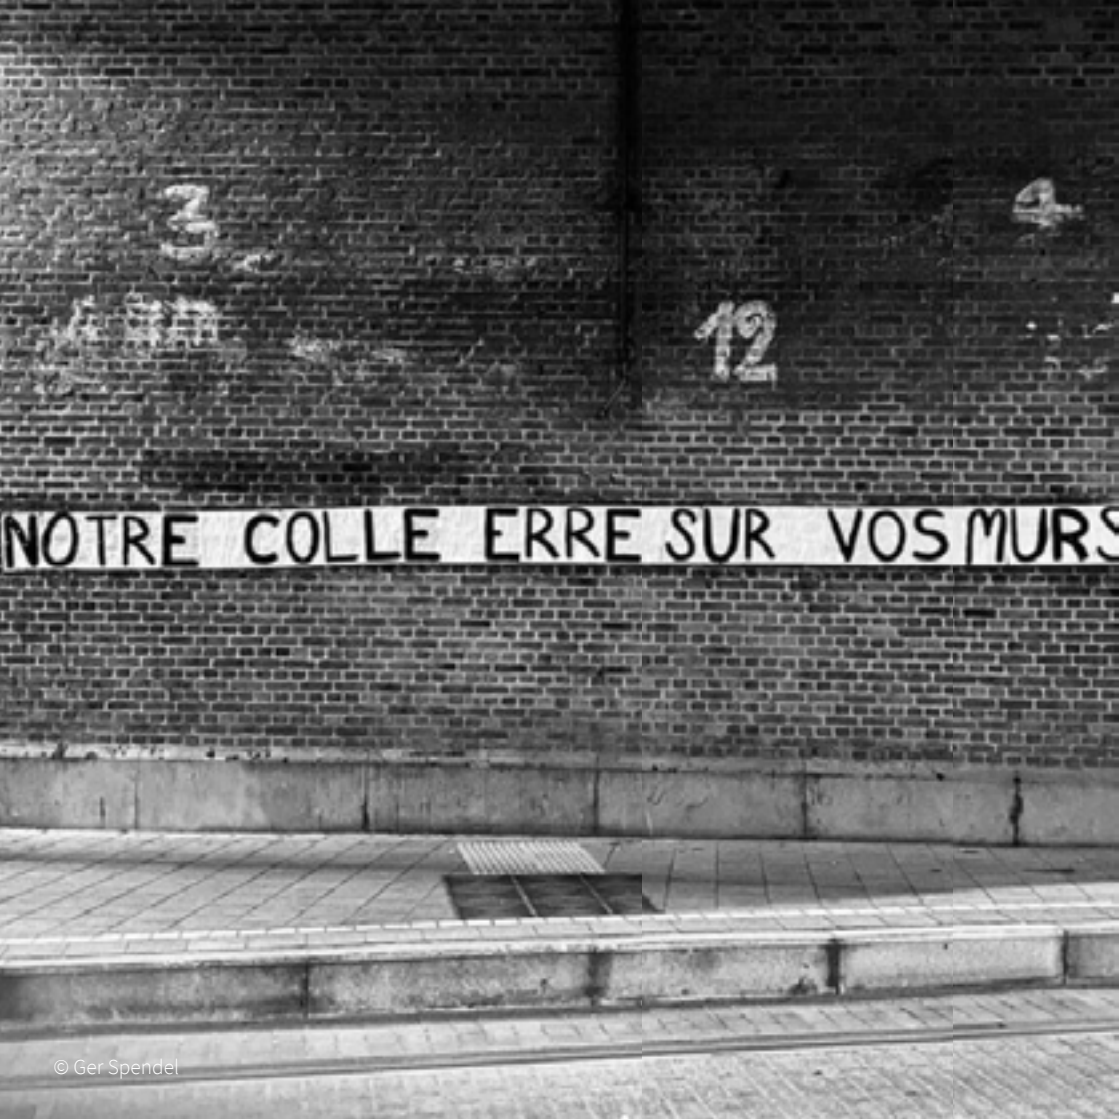 3
4
12
NOTRE COLLE ERRE SUR VOS MURS
© Ger Spendel